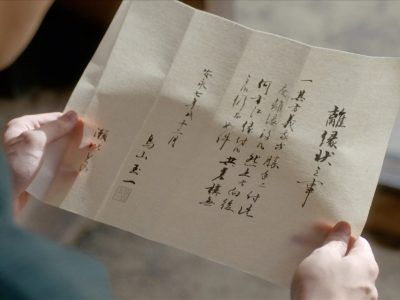 離縁状之事
一其方義我等勝手ニ付
離縁候然上者向後
何方江縁付候共差構無
之候仍而如件
安永七年戌十二月
鳥山玉一
瀬